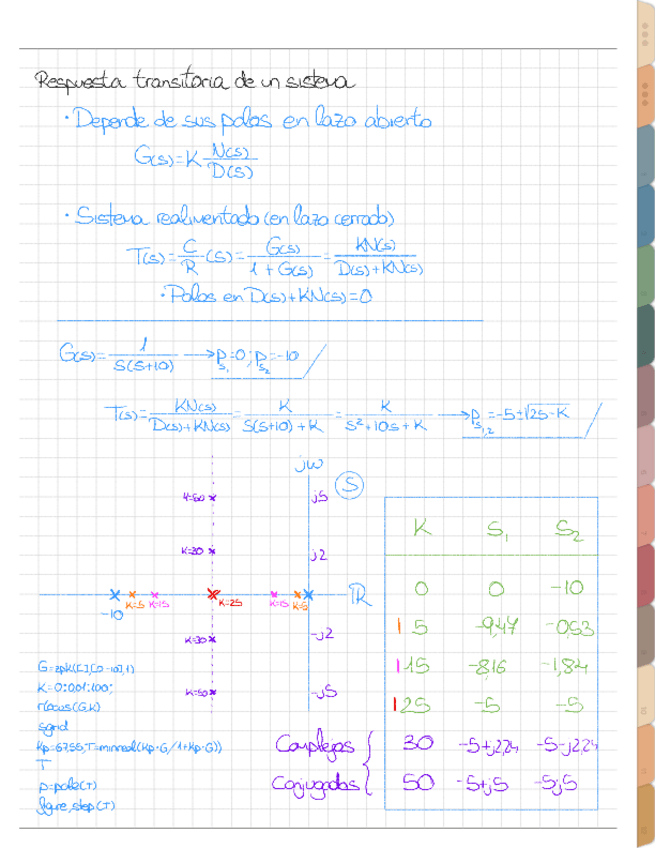 Respuesta transitoria de un sistema
· Depende de sus polos en lazo abierto
G(s)=K N(s)/D(s)
· Sistema realimentado (en lazo cerrado)
T(s)=C/R(s)=G(s)/(1+G(s))=KN(s)/(D(s)+KN(s))
· Polos en D(s)+KN(s)=0
G(s)=1/(s(s+10)) → Ps1=0; Ps2=-10
T(s)=KN(s)/(D(s)+KN(s))=K/(s(s+10)+K)=K/(s²+10s+K) → Ps1,2=-5±√25-K
jω
S
K=50
j5
K=30
j2
ℝ
-10
K=5
K=15
K=25
K=15
K=5
K=30
-j2
K=50
-j5
K S1 S2
0 0 -10
5 -9,47 -0,53
15 -8,16 -1,84
25 -5 -5
Complejos
Conjugados
30 -5+j2,24 -5-j2,24
50 -5+j5 -5-j5
G=zpk([],[0 -10],1)
K=0:0,01:100;
rlocus(G,K)
sgrid
Kp=67,55; T=minreal(Kp·G/1+Kp·G))
T
p=pole(T)
figure, step(T)